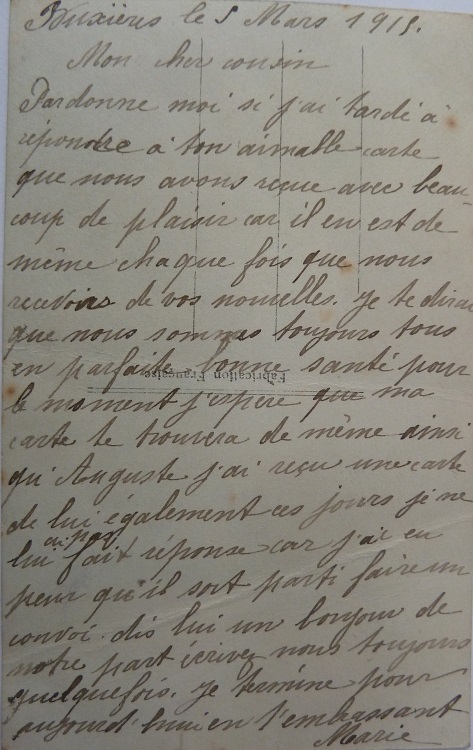 Buxières le 5 Mars 1915.
Mon cher cousin
Pardonne moi si j'ai tardé à
répondre à ton aimable carte
que nous avons reçue avec beau-
coup de plaisir car il en est de
même chaque fois que nous
recevons de vos nouvelles. Je te dirai
que nous sommes toujours tous
en parfaite bonne santé pour
Fabrication Française
le moment j'espère que ma
carte te trouvera de même ainsi
qu'Auguste j'ai reçu une carte
de lui également ces jours je ne
lui ai pas fait réponse car j'ai eu
peur qu'il soit parti faire un
convoi. dis lui un bonjour de
notre part écrivez nous toujours
quelquefois. Je termine pour
aujourd'hui en t'embrassant
Marie